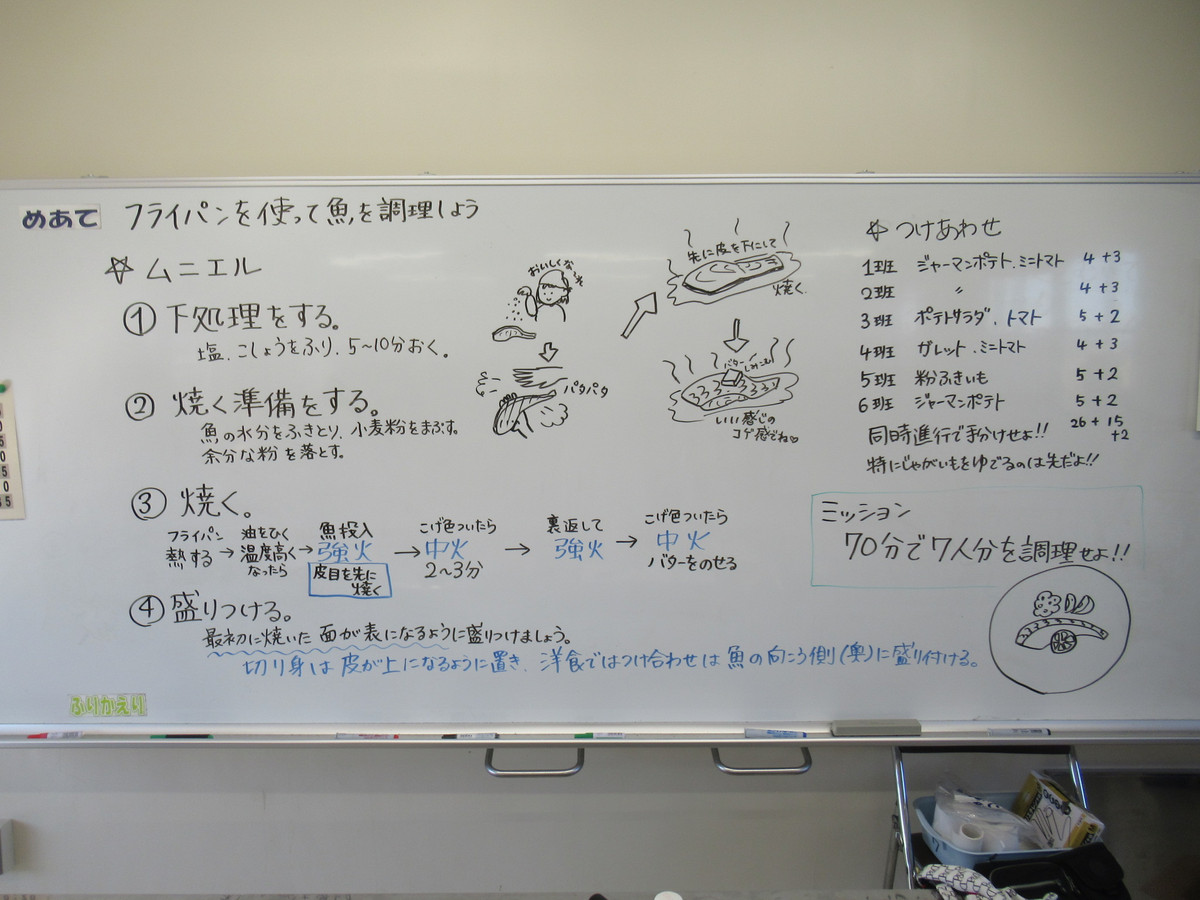 めあて フライパンを使って魚を調理しよう
☆ ムニエル
① 下処理をする。
塩、こしょうをふり、5~10分おく。
② 焼く準備をする。
魚の水分をふきとり、小麦粉をまぶす。
余分な粉を落とす。
③ 焼く。
フライパン熱する → 油をひく 温度高くなったら → 魚投入 強火 皮目を先に焼く → こげ色ついたら 中火 2~3分 → 裏返して 強火 → こげ色ついたら 中火 バターをのせる
④ 盛りつける。
最初に焼いた面が表になるように盛りつけましょう。
切り身は皮が上になるように置き、洋食ではつけ合わせは魚の向こう側(奥)に盛り付ける。
ふりかえり
おいしくな
パタパタ
先に皮を下にして
焼く
バター
いい感じの
コゲ感でね♡
☆ つけあわせ
1班 ジャーマンポテト、ミニトマト 4+3
2班 〃 4+3
3班 ポテトサラダ、トマト 5+2
4班 ガレット、ミニトマト 4+3
5班 粉ふきいも 5+2
6班 ジャーマンポテト 5+2
26+15
+2
同時進行で手分けせよ!!
特にじゃがいもをゆでるのは先だよ!!
ミッション
70分で7人分を調理せよ!!